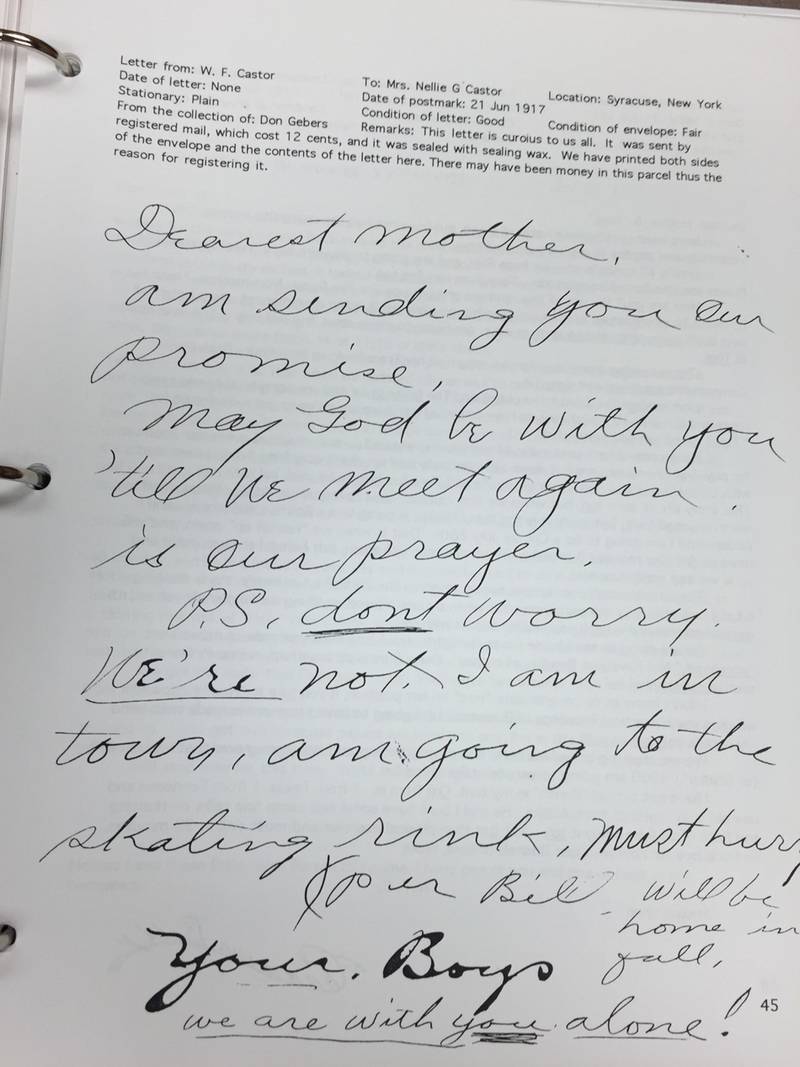 Letter from: W. F. Castor
To: Mrs. Nellie G Castor
Location: Syracuse, New York
Date of letter: None
Date of postmark: 21 Jun 1917
Stationary: Plain
Condition of letter: Good
Condition of envelope: Fair
From the collection of: Don Gebers
Remarks: This letter is curoius to us all. It was sent by
registered mail, which cost 12 cents, and it was sealed with sealing wax. We have printed both sides
of the envelope and the contents of the letter here. There may have been money in this parcel thus the
reason for registering it.
Dearest Mother,
am sending you our
promise,
May God be with you
'till we meet again.
is our prayer.
P.S. dont worry.
We're not. I am in
town, am going to the
skating rink, must hurry
(per Bill will be
home in
fall,
Your. Boys
we are with you alone!
45